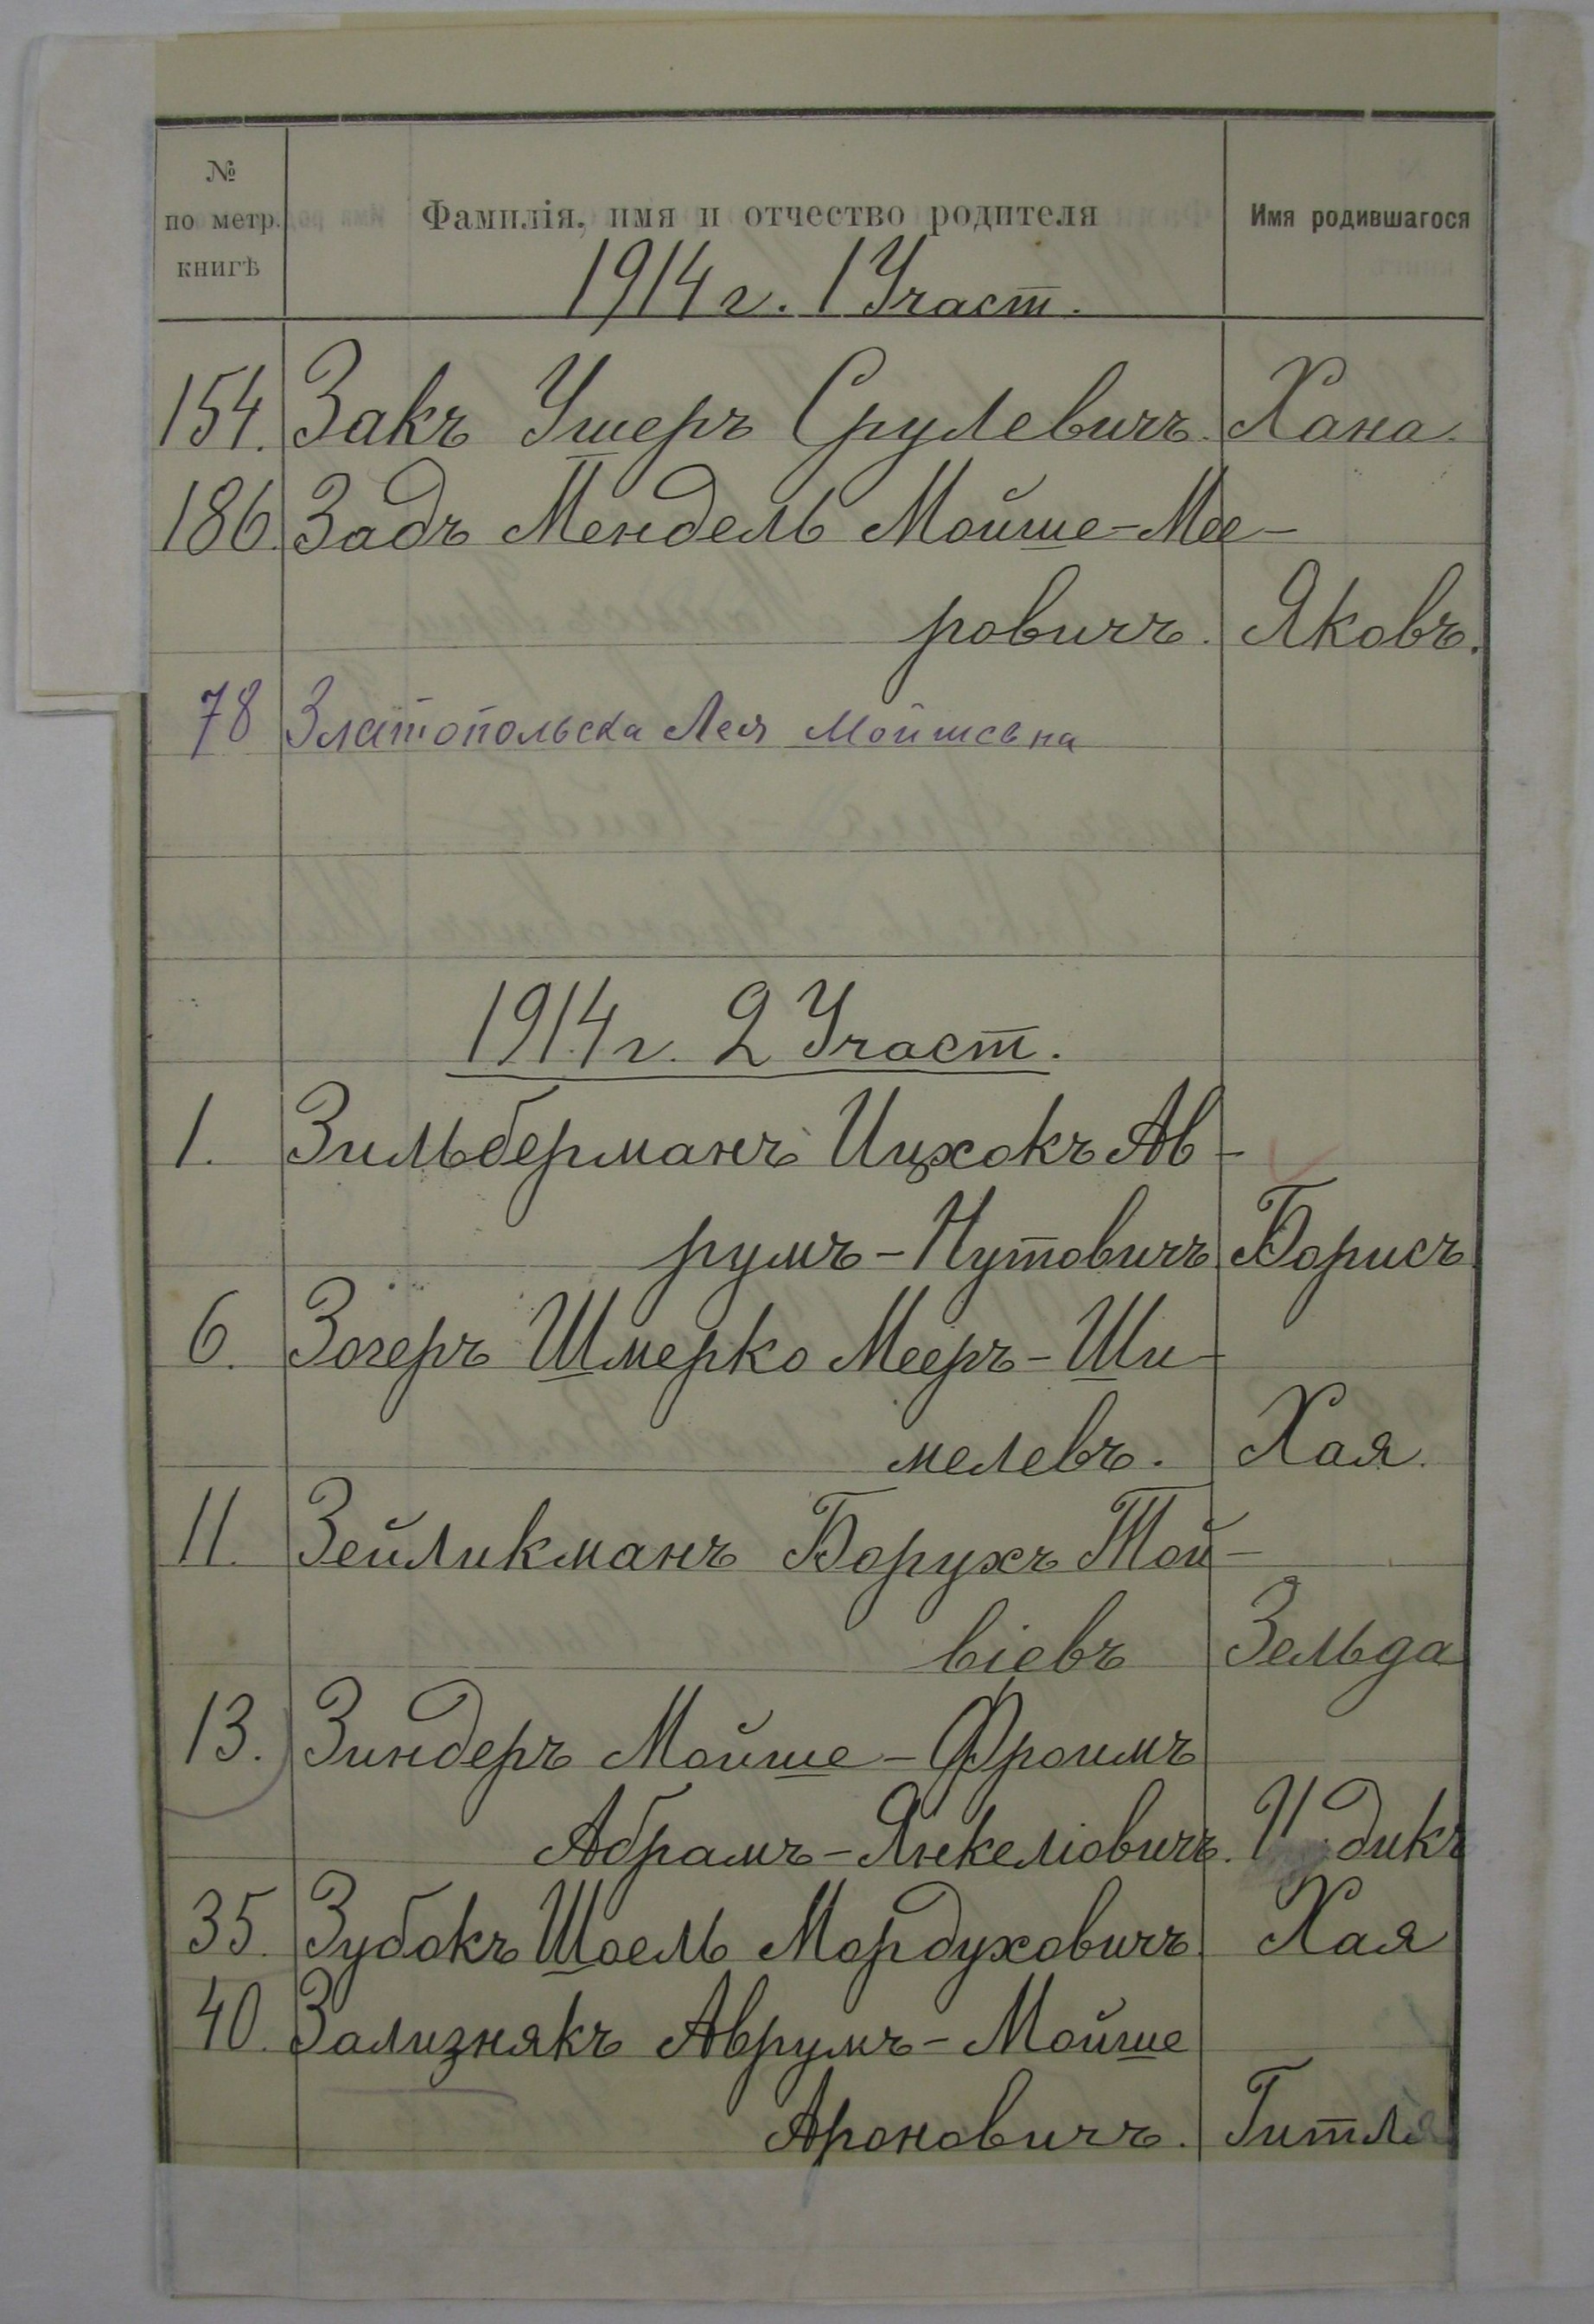 № по метр. книгѣ Фамилія, имя и отчество родителя Имя родившагося
1914 г. 1 Участ.
154. Закъ Ушеръ Срулевичъ. Хана.
186. Задъ Мендель Мойше-Мее-
ровичъ. Яковъ.
78 Златопольска Лея Мойшевна
1914 г. 2 Участ.
1. Зильберманъ Ицхокъ Ав-
румъ-Нутовичъ Борисъ
6. Зогеръ Шмерко Мееръ-Ши-
мелевъ. Хая.
11. Зейликманъ Борухъ Той-
віевъ Зельда
13. Зиндеръ Мойше-Фроимъ
Абрамъ-Янкеліовичъ.
35. Зубокъ Шоель Мордуховичъ Хая
40. Зализнякъ Аврумъ-Мойше
Ароновичъ. Гитля